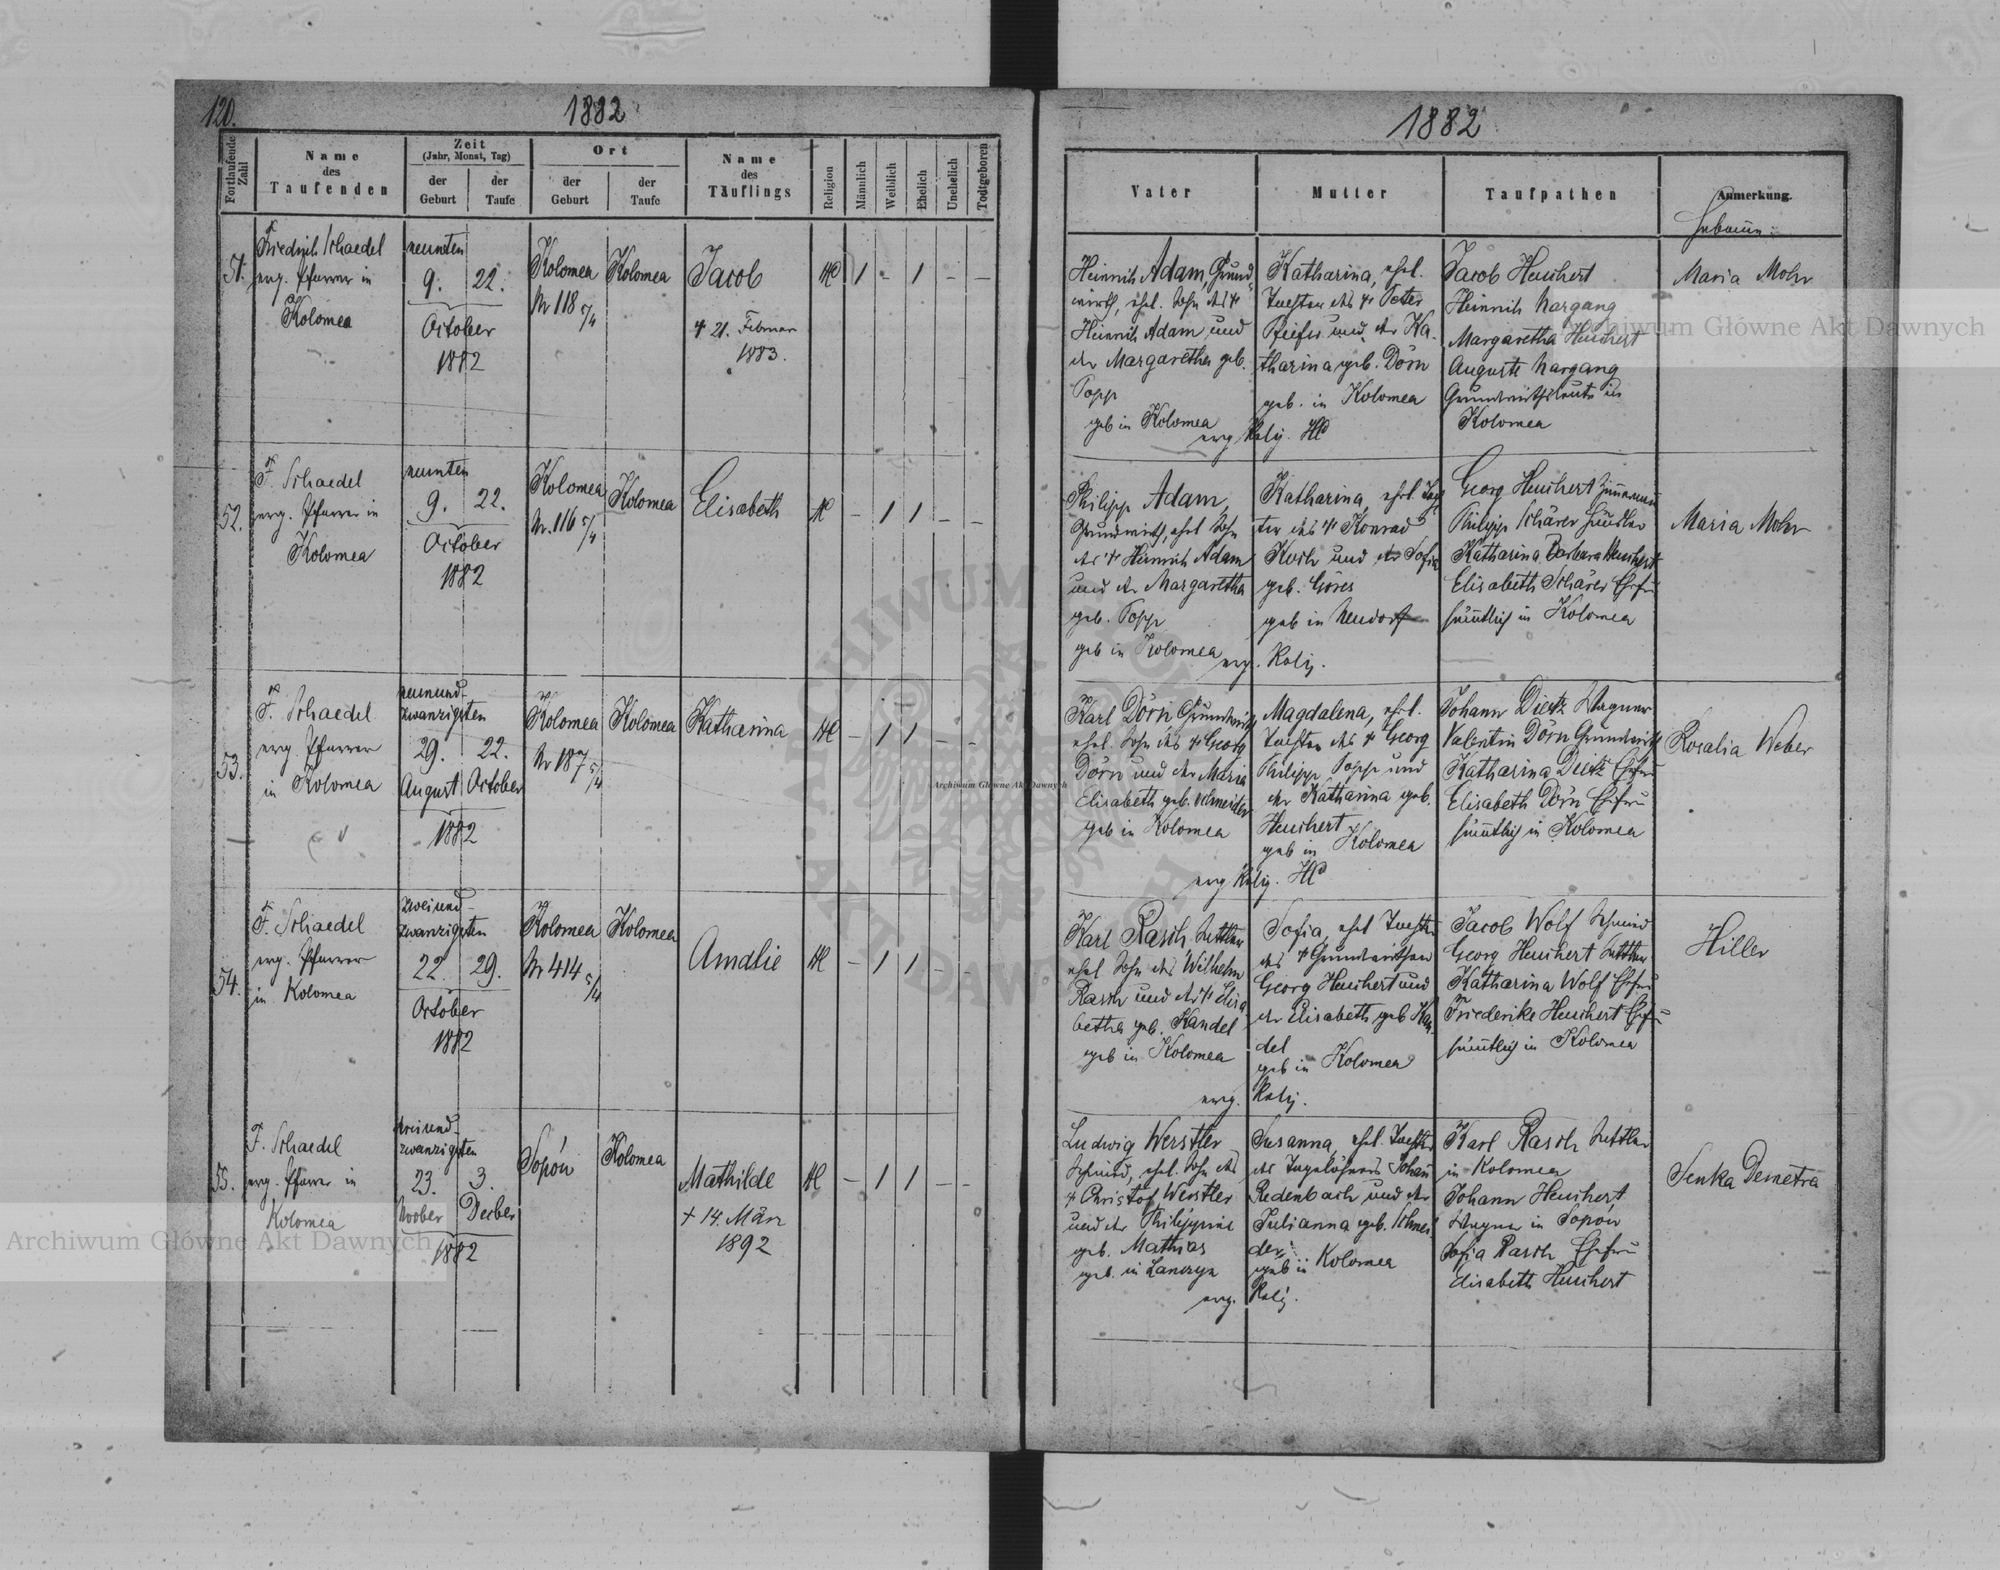 120.
1882
Fortlaufende Zahl
Name des Taufenden
Zeit
(Jahr, Monat, Tag)
der Geburt
der Taufe
Ort
der Geburt
der Taufe
Name des Täuflings
Religion
Männlich
Weiblich
Ehelich
Unehelich
Todtgeboren
51.
Friedrich Schaedel
erg. Pfarrer in
Kolomea
neunten
9. 22.
October
1882
Kolomea
Nr 118 5/4
Kolomea
Jacob
+ 21. Februar
1883.
HC
1 - 1 - -
52.
F. Schaedel
erg. Pfarrer in
Kolomea
neunten
9. 22.
October
1882
Kolomea
Nr. 116 5/4
Kolomea
Elisabeth
HC
- 1 1 - -
53.
F. Schaedel
erg. Pfarrer
in Kolomea
neunund-
zwanzigsten
29. 22.
August October
1882
Kolomea
Nr 187 5/4
Kolomea
Katharina
HC
- 1 1 - -
54.
F. Schaedel
erg. Pfarrer
in Kolomea
zweiund-
zwanzigsten
22. 29.
October
1882
Kolomea
Nr 414 5/4
Kolomea
Amalie
HC
- 1 1 - -
55.
F. Schaedel
erg. Pfarrer in
Kolomea
dreiund-
zwanzigsten
23. 3.
Novber Decber
1882
Sopów
Kolomea
Mathilde
+ 14. März
1892
HC
- 1 1 - -
1882
Vater
Mutter
Taufpathen
Anmerkung.
Hebamme:
Heinrich Adam, Grund-
wirth, ehel. Sohn des +
Heinrich Adam und
der Margaretha geb.
Popp
geb in Kolomea
Katharina, ehel.
Tochter des + Peter
Pfeifer und der Ka-
tharina geb. Dörn
geb. in Kolomea
erg Relig. HC
Jacob Heuchert
Heinrich Nargang
Margaretha Heuchert
Auguste Nargang
Grundwirthsleute in
Kolomea
Maria Mohr
Philipp Adam,
Grundwirth, ehel Sohn
des + Heinrich Adam
und der Margaretha
geb. Popp
geb in Kolomea
Katharina, ehel Toch
ter des + Konrad
Koch und der Sofia
geb. Göres
geb in Neudorf
erg. Relig.
Georg Heuchert Zimmermann
Philipp Schärer Häusler
Katharina Barbara Heuchert
Elisabeth Schärer Ehefr
sämtlich in Kolomea
Maria Mohr
Karl Dörn Grundwirth
ehel. Sohn des + Georg
Dörn und der Maria
Elisabeth geb. Schneider
geb in Kolomea
Magdalena, ehel.
Tochter des + Georg
Philipp Popp und
der Katharina geb.
Heuchert
geb in Kolomea
erg Relig. HC
Johann Dietz Wagner
Valentin Dörn Grundwirth
Katharina Dietz Ehefr
Elisabeth Dörn Ehefr
sämtlich in Kolomea
Rosalia Weber
Karl Rasch Sattler
ehel Sohn des Wilhelm
Rasch und der + Elisa
betha geb. Kandel
geb in Kolomea
Sofia, ehel Tochter
des + Grundwirthen
Georg Heuchert und
der Elisabeth geb Kan-
del
geb in Kolomea
erg. Relig.
Jacob Wolf Schmied
Georg Heuchert Sattler
Katharina Wolf Ehefr
Friederike Heuchert Ehefr
sämtlich in Kolomea
Hiller
Ludwig Werstler
Schmied, ehel. Sohn des
+ Christof Werstler
und der Philippine
geb. Mathias
geb. in Lanczyn
Susanna, ehel. Tochter
des Tagelöhners Johann
Redenbach und der
Julianna geb. Schnei
der
geb in Kolomea
erg. Relig.
Karl Rasch Sattler
in Kolomea
Johann Heuchert,
Wagner in Sopów
Sofia Rasch Ehefr
Elisabeth Heuchert
Senka Demetra
Archiwum Główne Akt Dawnych
Archiwum Główne Akt Dawnych
Archiwum Główne Akt Dawnych